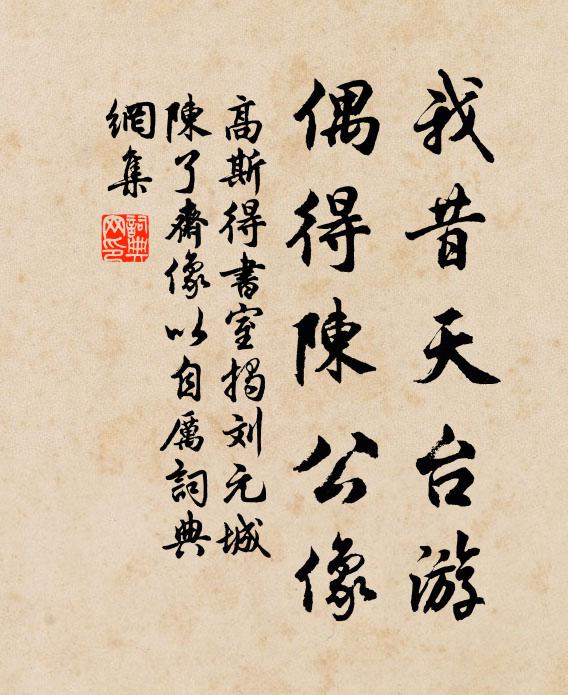 我昔天台游
偶得陳公像
高斯得書室揭刘元城
陳了齋像以自厲詞典
網集
詞典網印